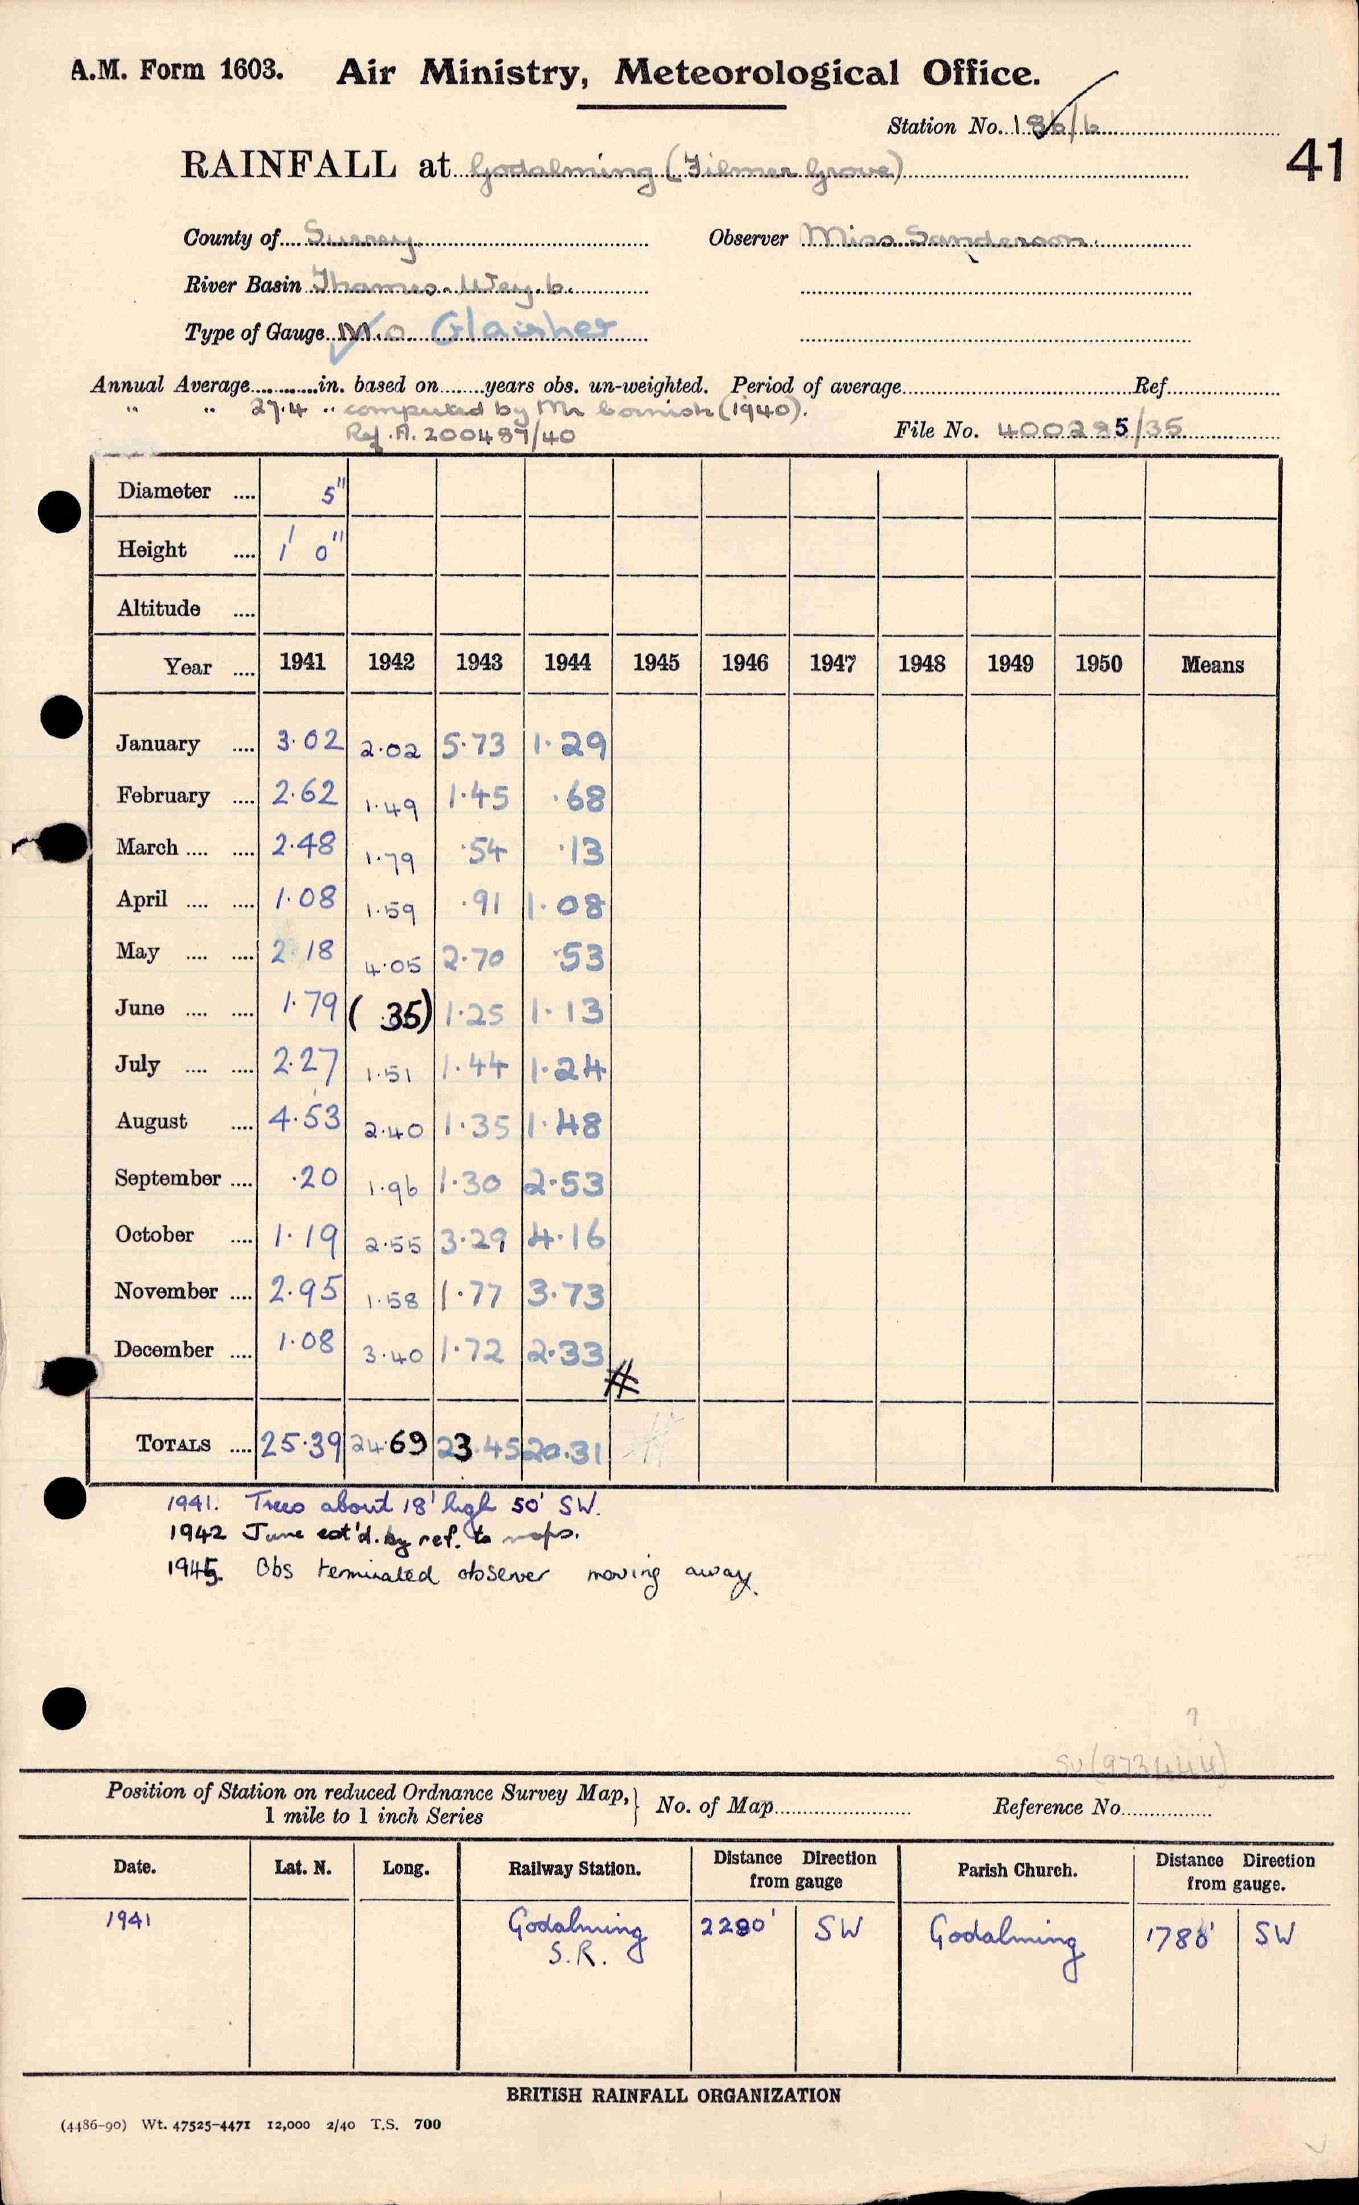 A.M. Form 1603. Air Ministry, Meteorological Office.
Station No. 186/6
RAINFALL at Godalming (Filmer Grove)
41
County of Surrey Observer Miss Sanderson.
River Basin Thames. Wey. b.
Type of Gauge M.O. Glaisher
Annual Average............in. based on.......years obs. un-weighted. Period of average............Ref............
" " 27.4 " computed by Mr Cornish (1940).
Ref. A. 200487/40 File No. 400285/35
Diameter .... 5"
Height .... 1' 0"
Altitude ....
Year .... 1941 1942 1943 1944 1945 1946 1947 1948 1949 1950 Means
January .... 3.02 2.02 5.73 1.29
February .... 2.62 1.49 1.45 .68
March .... .... 2.48 1.79 .54 .13
April .... .... 1.08 1.59 .91 1.08
May .... .... 2.18 4.05 2.70 .53
June .... .... 1.79 ( .35) 1.25 1.13
July .... .... 2.27 1.51 1.44 1.24
August .... 4.53 2.40 1.35 1.48
September .... .20 1.96 1.30 2.53
October .... 1.19 2.55 3.29 4.16
November .... 2.95 1.58 1.77 3.73
December .... 1.08 3.40 1.72 2.33
#
TOTALS .... 25.39 24.69 23.45 20.31 #
1941. Trees about 18' high 50' SW.
1942 June est'd. by ref. to maps.
1945. Obs terminated observer moving away.
?
SU(973444)
Position of Station on reduced Ordnance Survey Map, } No. of Map............ Reference No............
1 mile to 1 inch Series
Date. Lat. N. Long. Railway Station. Distance Direction from gauge Parish Church. Distance Direction from gauge.
1941 Godalming 2280' SW Godalming 1780' SW
S.R.
BRITISH RAINFALL ORGANIZATION
(4486-90) Wt. 47525-4471 12,000 2/40 T.S. 700